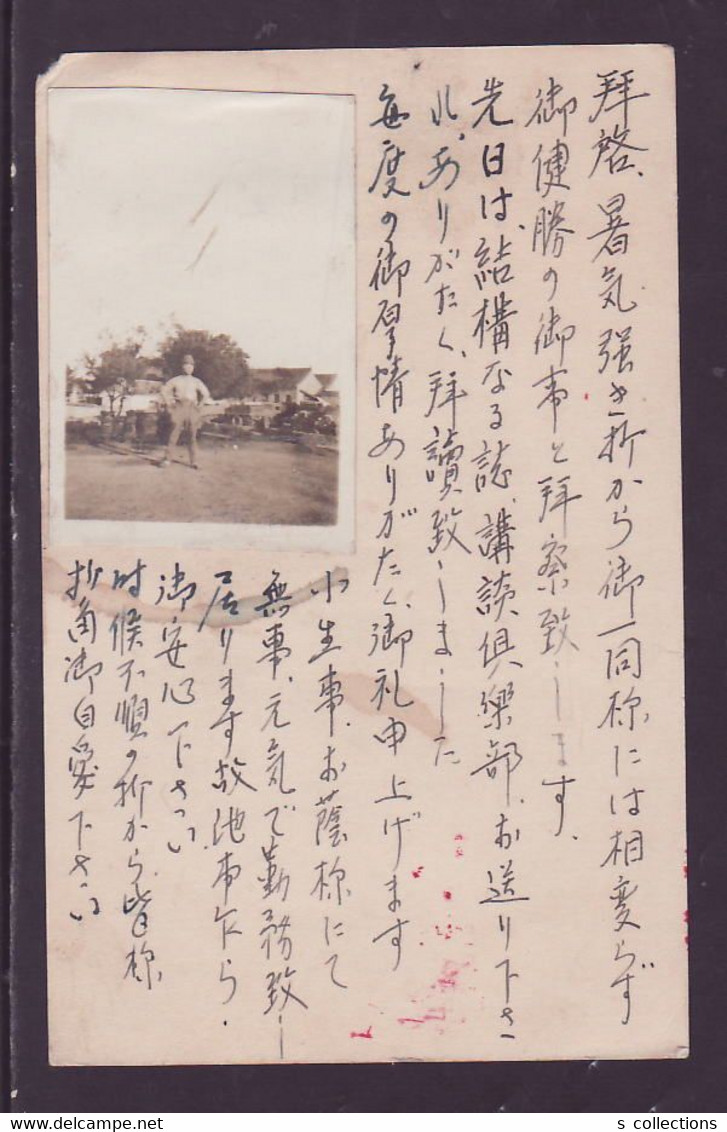 拝啓、暑気強き折から御一同様には相変らず
御健勝の御事と拝察致します。
先日は、結構なる誌、講談倶楽部、お送り下さ
れ、ありがたく、拝讀致しました
毎度の御厚情ありがたく、御礼申上げます
小生事、お蔭様にて
無事、元気で勤務致し
居ります故他事乍ら、
御安心下さい
時候不順の折から皆様
折角御自愛下さい
s collections